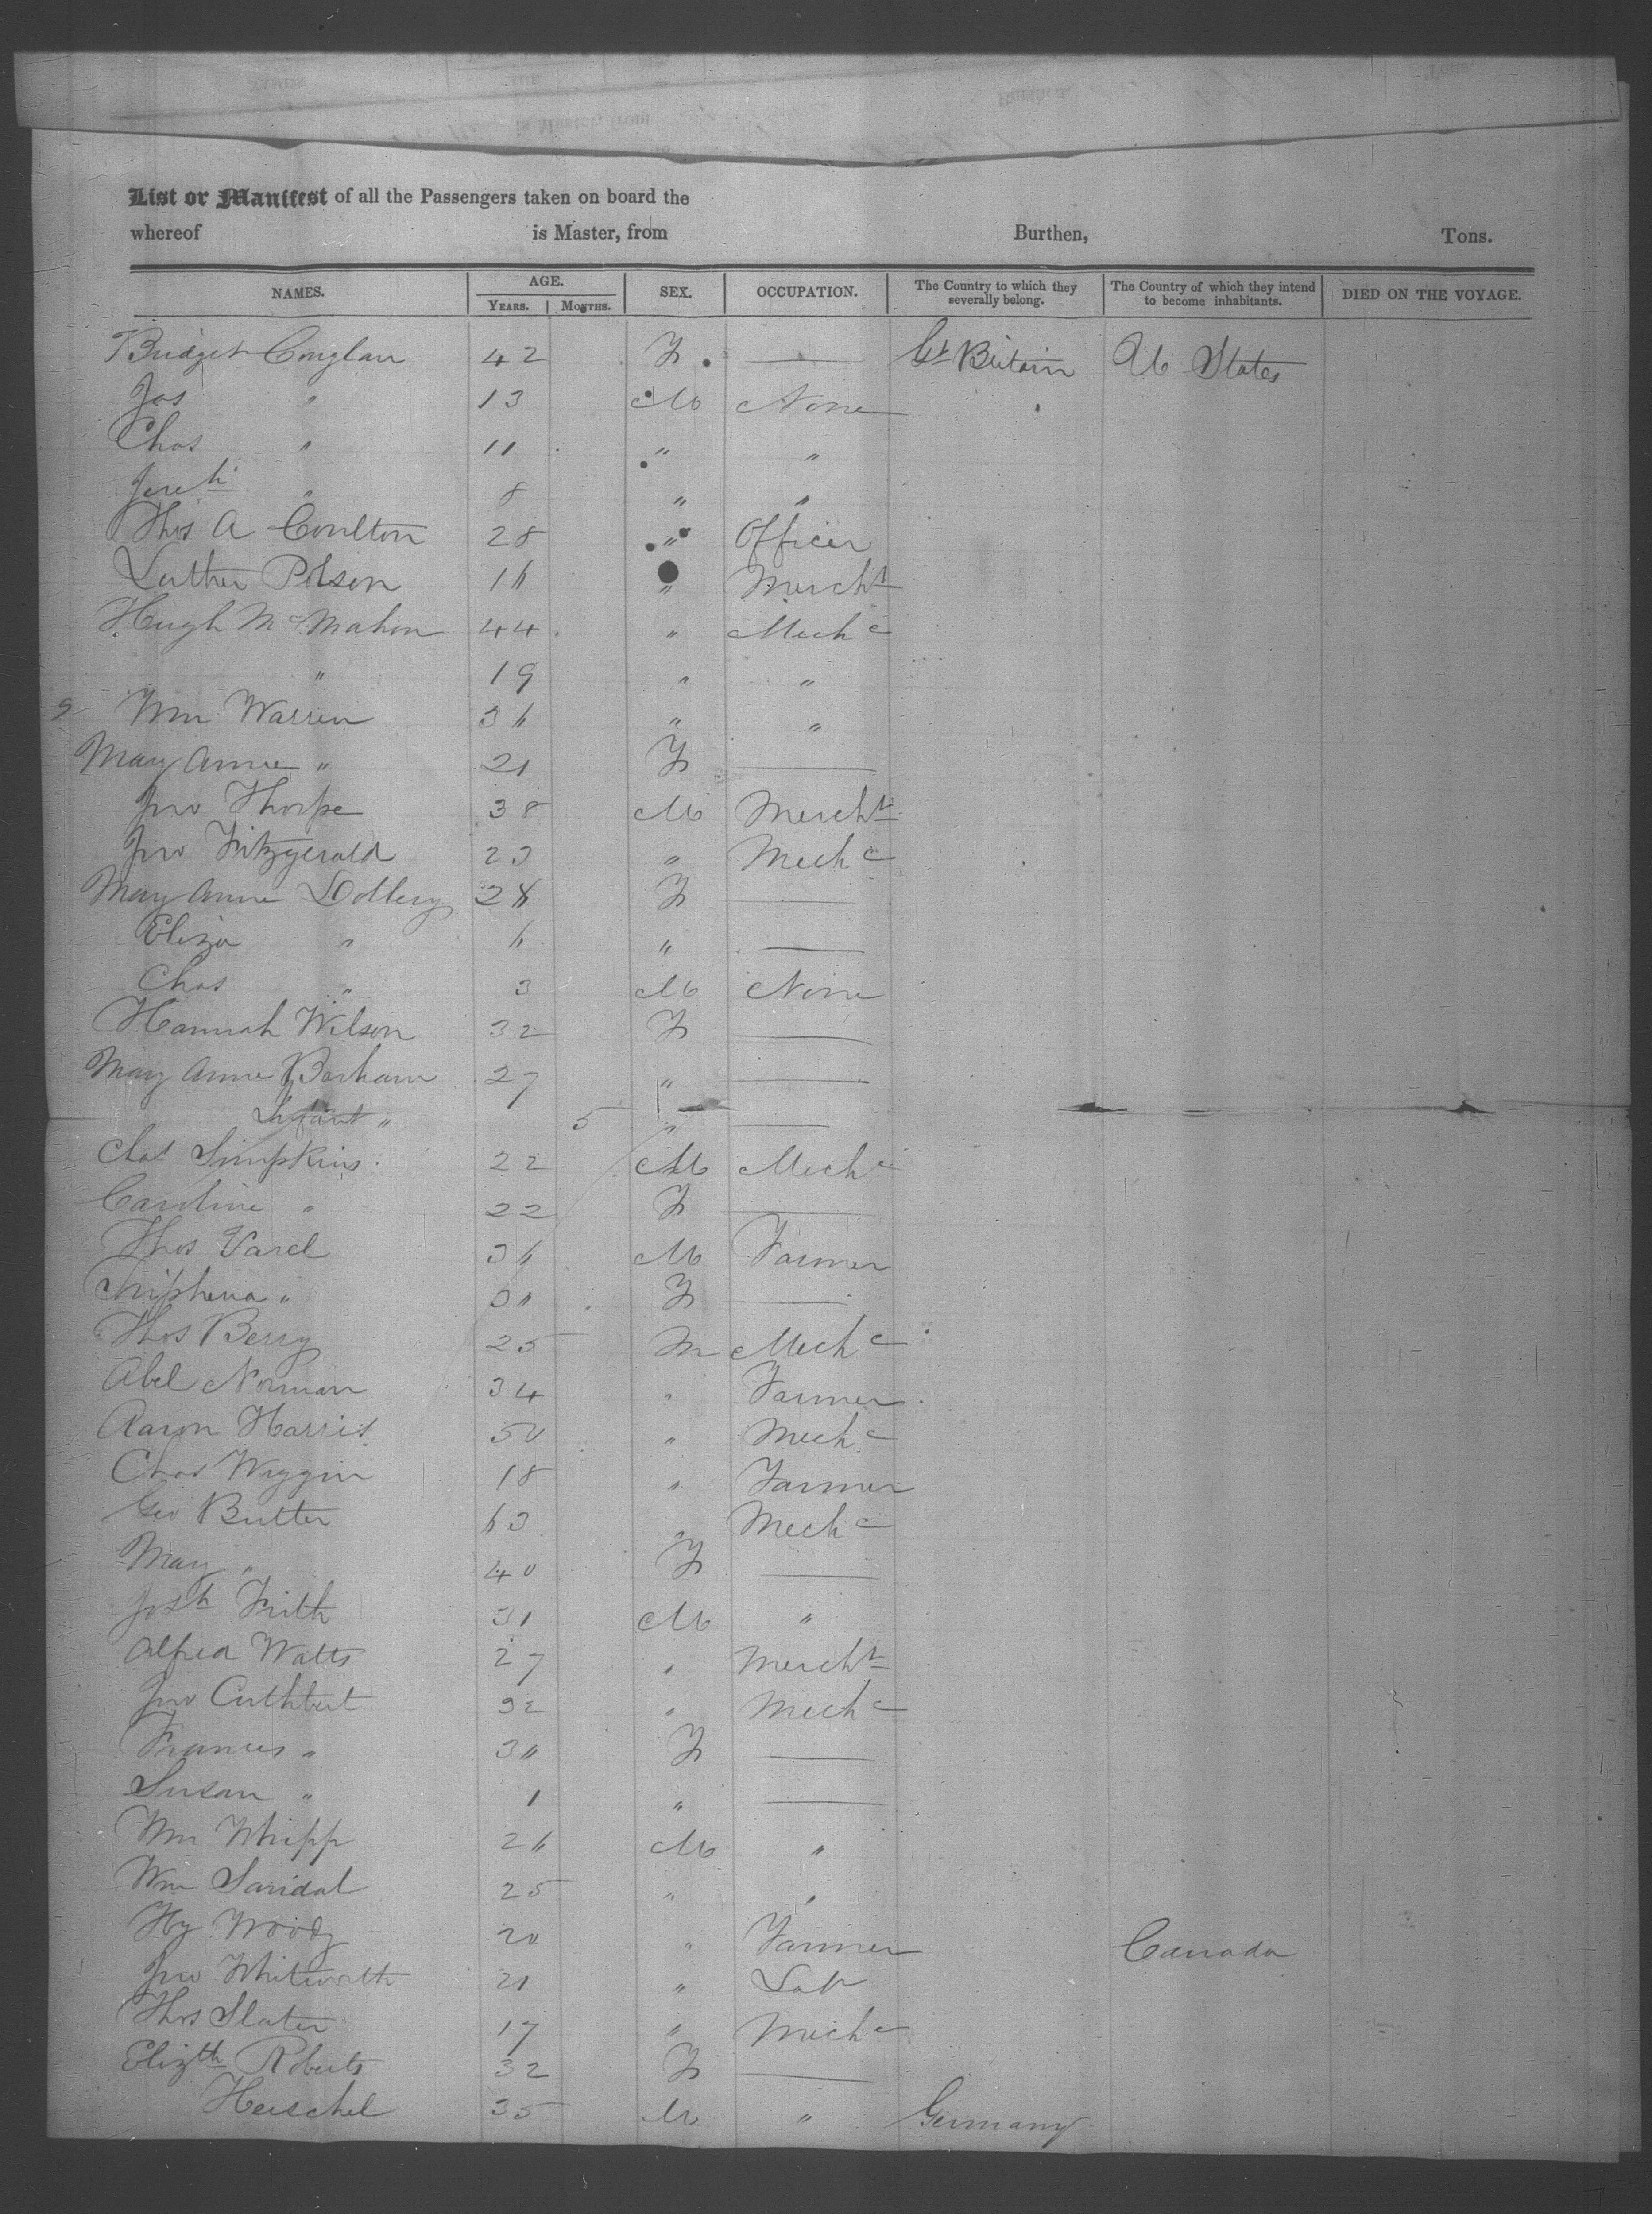 List or Manifest of all the Passengers taken on board the
whereof is Master, from Burthen, Tons.
NAMES. AGE. YEARS. MONTHS. SEX. OCCUPATION. The Country to which they severally belong. The Country of which they intend to become inhabitants. DIED ON THE VOYAGE.
Bridget Conglan 42 F — Gt Britain U States
Jas " 13 M None
Chas " 11 " "
Jereh " 8 " "
Thos A Coulton 28 " Officer
Luther Polson 16 " Mercht
Hugh McMahon 44 " Mechc
" 19 " "
Wm Warren 36 " "
Mary Anne " 21 F —
Jno Thorpe 38 M Mercht
Jno Fitzgerald 23 " Mechc
Mary Anne Dollery F —
Eliza " 6 " —
Chas " 3 M None
Hannah Wilson 32 F —
Mary Anne Barham 27 " —
Infant " 5 " —
Chas Simpkins 22 M Mechc
Caroline " 22 F —
Thos Varel 36 M Farmer
Triphena " F —
Thos Berry 25 M Mechc
Abel Norman 34 " Farmer
Aaron Harris 50 " Mechc
Chas Wiggin 18 " Farmer
Geo Butter 63 " Mechc
Mary " 40 F —
Josh Frith 31 M "
Alfred Watts 27 " Mercht
Jno Cuthbert 32 " Mechc
Frances " F —
Susan " 1 " —
Wm Whipp 26 M "
Wm 25 " "
Hy Woody 20 " Farmer Canada
Jno Whitworth 21 " Labr
Thos Slater 17 " Mechc
Elizth Roberts 32 F —
Herschel 35 M " Germany